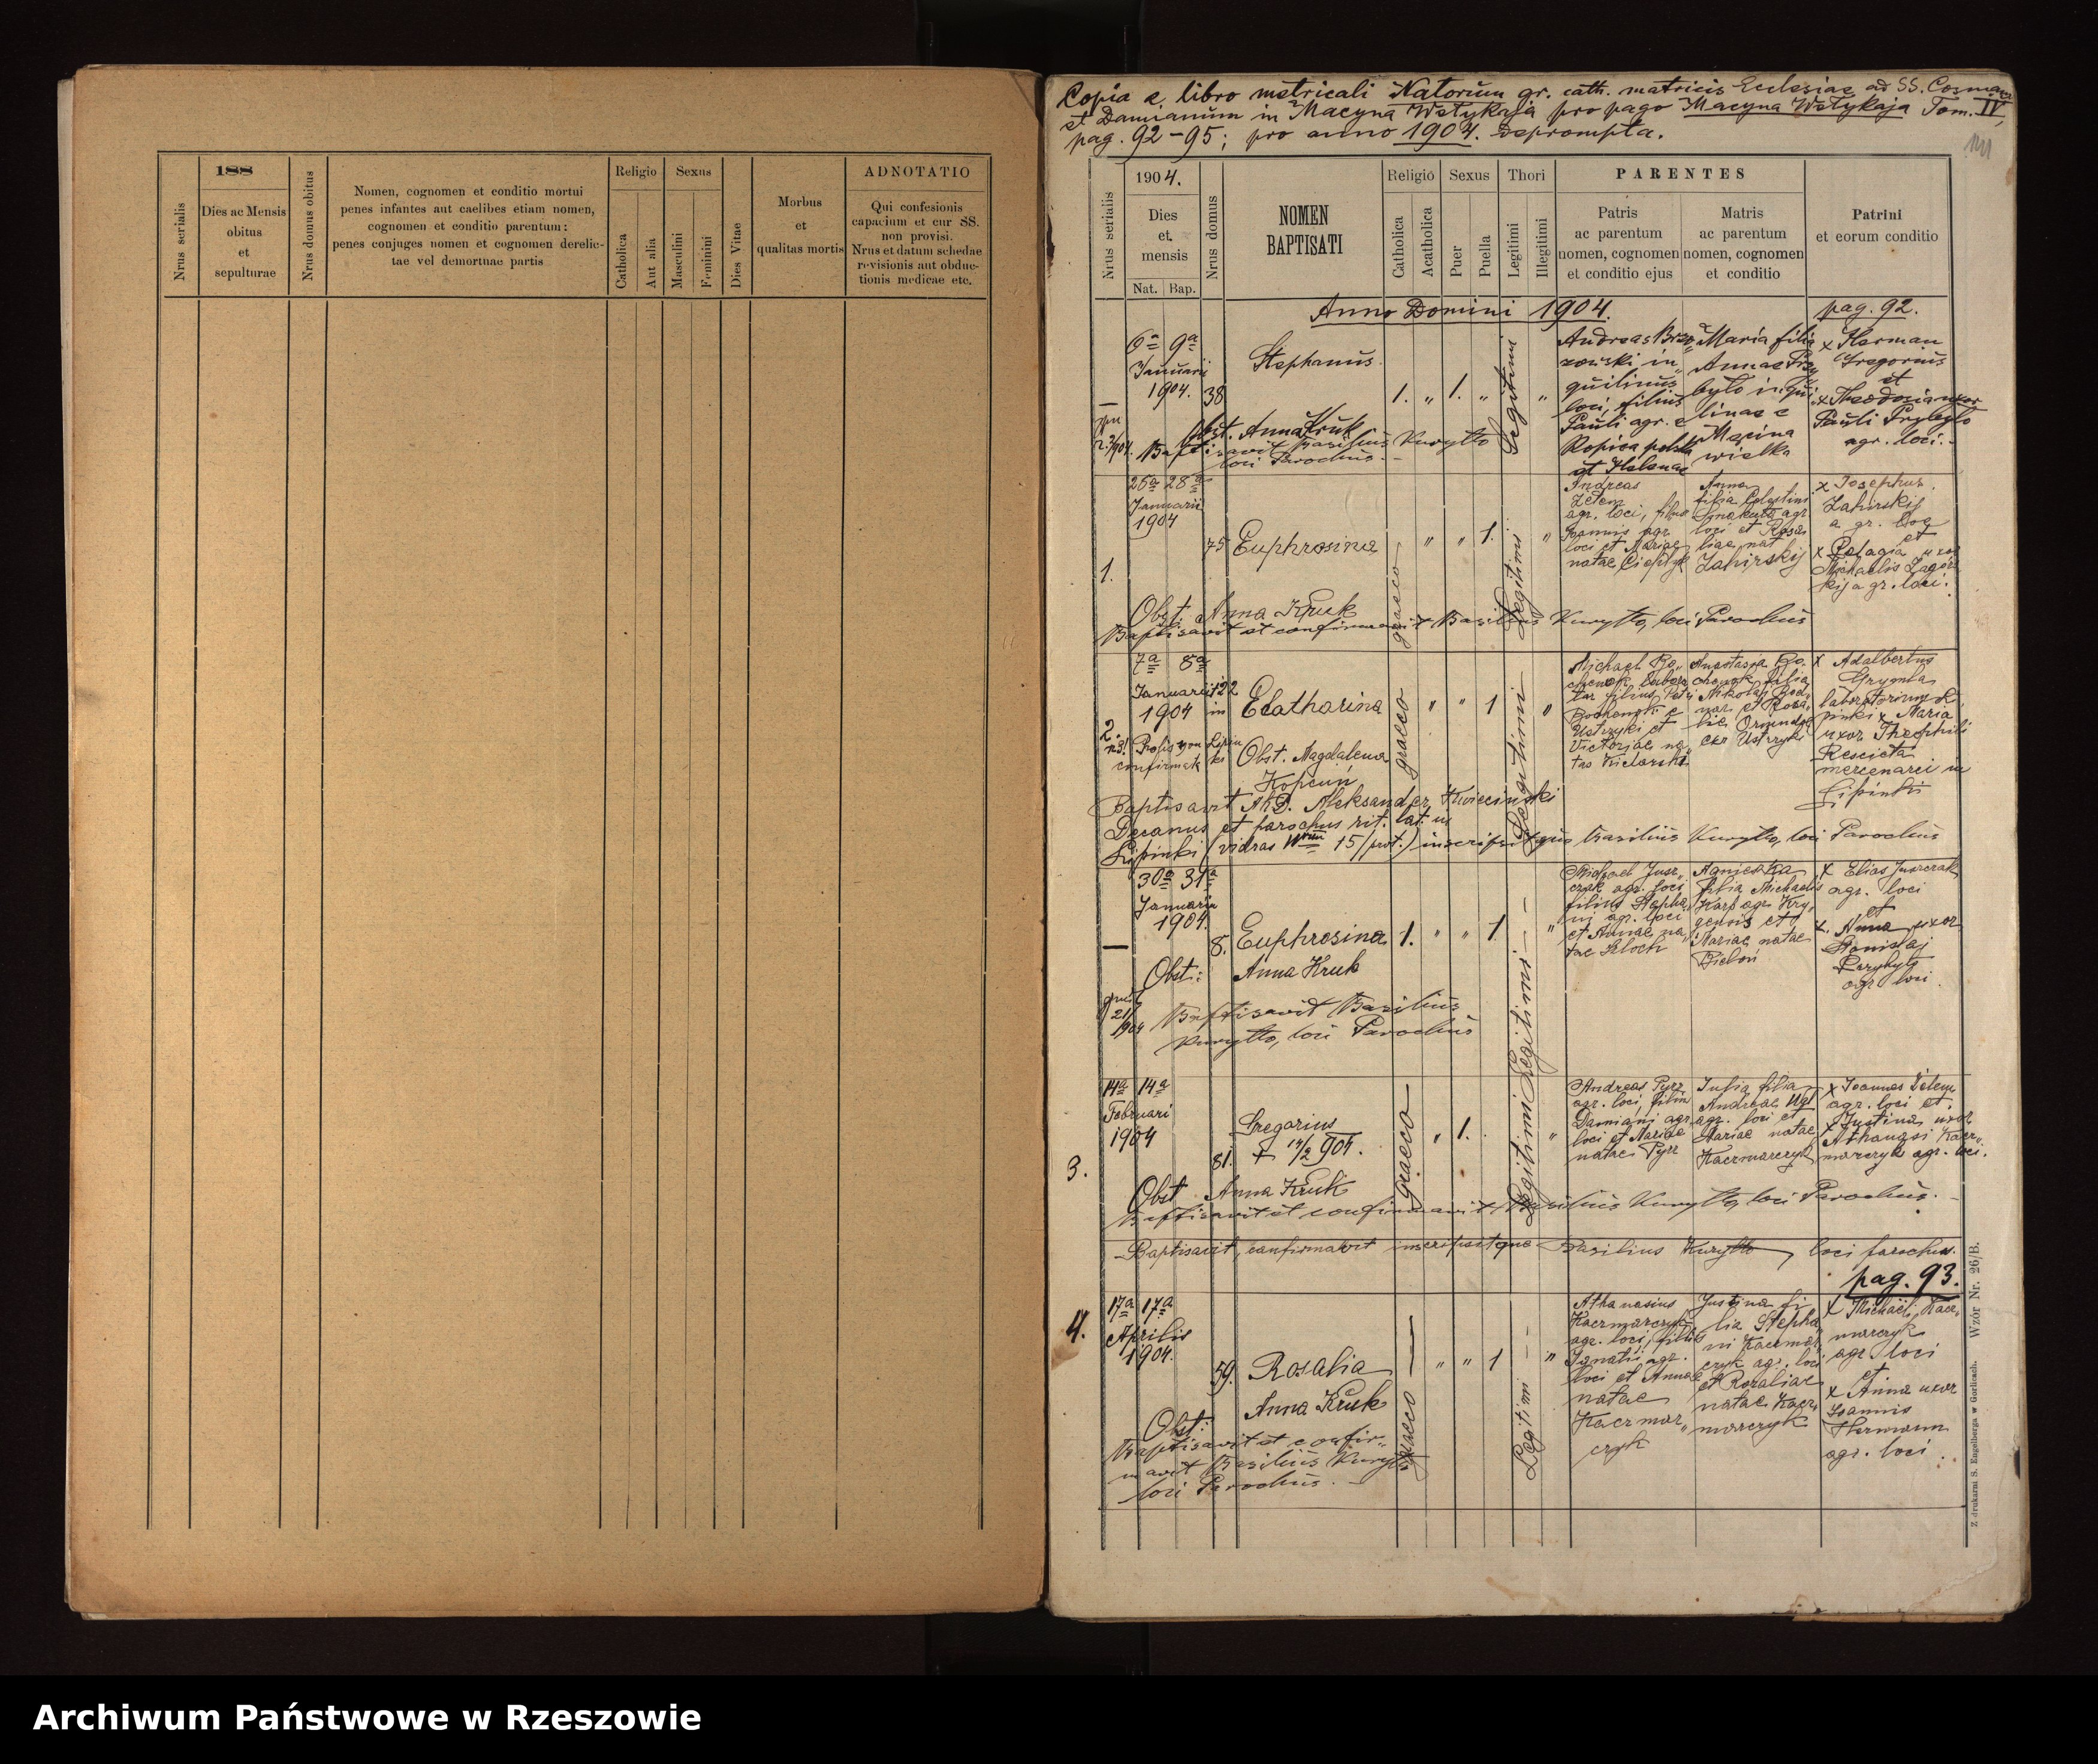 188
Nrus serialis
Dies ac Mensis
obitus
et
sepulturae
Nrus domus obitus
Nomen, cognomen et conditio mortui
penes infantes aut caelibes etiam nomen,
cognomen et conditio parentum:
penes conjuges nomen et cognomen derelic-
tae vel demortuae partis
Religio
Catholica
Aut alia
Sexus
Masculini
Feminini
Dies Vitae
Morbus
et
qualitas mortis
ADNOTATIO
Qui confesionis
capacium et cur SS.
non provisi.
Nrus et datum schedae
revisionis aut obduc-
tionis medicae etc.
Copia e libro metricali Natorum gr. cath. matricis Ecclesiae ad SS. Cosmam
et Damianum in Macyna Wełykaja pro pago Macyna Wełykaja Tom. IV,
pag. 92-95; pro anno 1904. deprompta.
Nrus serialis
1904.
Dies
et
mensis
Nat. Bap.
Nrus domus
NOMEN
BAPTISATI
Religio
Catholica
Acatholica
Sexus
Puer
Puella
Thori
Legitimi
Illegitimi
PARENTES
Patris
ac parentum
nomen, cognomen
et conditio ejus
Matris
ac parentum
nomen, cognomen
et conditio
Patrini
et eorum conditio
Anno Domini 1904.
pag. 92.
6a 9a
Januarii
1904.
38
Stephanus
1. " 1. "
Legitimi
"
loci, filius
Pauli agr. e
Ropica polska
et Helenae
Maria filia
Annae
linae e
Macina
wielka
x Herman
Gregorius
et
x Theodosia uxor
Pauli Przybyło
agr. loci.
Obst. Anna Kruk
Baptisavit Basilius Kuryłło
loci Parochus.
1.
26a 28a
Januarii
1904
75
Euphrosina
graeco
" " 1.
Legitimi
"
Andreas
Żełem
agr. loci, filius
Joannis agr.
loci et Mariae
natae
Anna
filia Celestini
agr.
loci et Rosa
liae nat
Zahirskij
x Josephus
Zahirskij
agr. loci
et
x Pelagia uxor
Michaelis
kij agr. loci.
Obst. Anna Kruk
Baptisavit et confirmavit Basilius Kuryłło, loci Parochus
2.
7a 8a
Januarii
1904
122
in
Ecatharina
graeco
" " 1
Legitimi
"
Michael Bo
filius Petri
Ustrzyki et
Victoriae na
tae
Anastasia Bo
filia
Nikolaj Bod
nar et Rosa
liae
Ustrzyki
x Adalbertus
Grymla
pinki x Maria
uxor Theophili
Rescieta
mercenarii in
Lipinki
Prolis non
confirmata
Obst. Magdalena
Kopcuń
Baptisavit Aleksander Kwieciński
Decanus et parochus rit. lat. in
Lipinki (vidras 15/prot.) inscripsitque Basilius Kuryłło, loci Parochus
30a 31a
Januarii
1904.
8.
Euphrosina
1. " " 1.
Legitimi
"
Michael Jusz
czak agr. loci
filius Stepha
ni agr. loci
et Annae na
tae Kloch
Agnieszka
filia Michaelis
Karp agr. Kry
gensis et
Mariae natae
Bieloń
x Elias Juszczak
agr. loci
et
x. Anna uxor
Stanislaj
Przybyło
agr. loci
Obst: Anna Kruk
Baptisavit Basilius
Kuryłło, loci Parochus
3.
14a 14a
Februari
1904
81.
Gregorius
+ 14/2 904.
graeco
" 1.
Legitimi
"
Andreas Pyrz
agr. loci, filius
Damiani agr.
loci et Mariae
natae Pyrz
Julia filia
Andreae
agr. loci et
Mariae natae
Kaczmarczyk
x Joannes Żełem
agr. loci et
x Justina uxor
Athanasi Kacz
marczyk agr. loci.
Obst Anna Kruk
Baptisavit et confirmavit Basilius Kuryłło, loci Parochus.
Baptisavit, confirmavit inscripsitque Basilius Kuryłło, loci parochus.
pag. 93.
4.
17a 17a
Aprilis
1904.
59.
Rosalia
graeco
" " 1
Legitimi
"
Athanasius
Kaczmarczyk
agr. loci, filius
Ignatii agr.
loci et Annae
natae
Kaczmar
czyk
Justina fi
lia Stepha
ni Kaczmar
czyk agr. loci
et Rozaliae
natae Kacz
marczyk
x Michaël Kacz
marczyk
agr. loci
et
x Anna uxor
Joannis
Hermann
agr. loci.
Obst: Anna Kruk
Baptisavit et confir
mavit Basilius Kuryłło
loci Parochus.
Z drukarni S. Engelberga w Gorlicach. Wzór Nr. 26/B.
Archiwum Państwowe w Rzeszowie